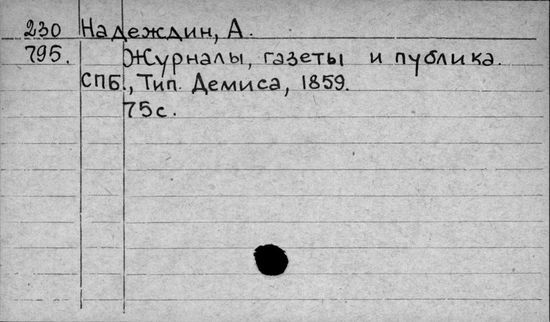 230 Надеждин, А.
795. Журналы, газеты и публика.
СПБ., Тип. Демиса, 1859.
75 с.